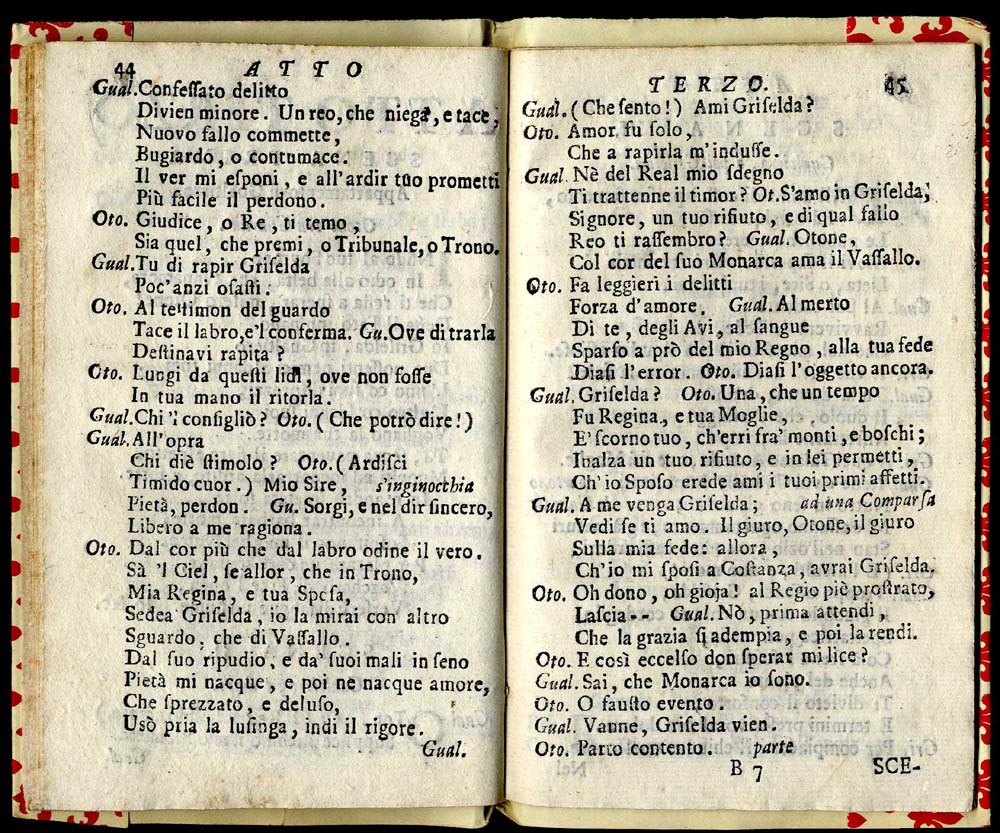 44 ATTO
Gual. Confeſſato delitto
Divien minore. Un reo, che niega, e tace,
Nuovo fallo commette,
Bugiardo, o contumace.
Il ver mi eſponi, e all'ardir tuo prometti
Più facile il perdono.
Oto. Giudice, o Re, ti temo,
Sia quel, che premi, o Tribunale, o Trono.
Gual. Tu di rapir Griſelda
Poc'anzi oſaſti.
Oto. Al teſtimon del guardo
Tace il labro, e'l conferma. Gu. Ove di trarla
Deſtinavi rapita?
Oto. Lungi da queſti lidi, ove non foſſe
In tua mano il ritorla.
Gual. Chi 'l conſigliò? Oto. (Che potrò dire!)
Gual. All'opra
Chi diè ſtimolo? Oto. (Ardiſci
Timido cuor.) Mio Sire, s'inginocchia
Pietà, perdon. Gu. Sorgi, e nel dir ſincero,
Libero a me ragiona.
Oto. Dal cor più che dal labro odine il vero.
Sà 'l Ciel, ſe allor, che in Trono,
Mia Regina, e tua Spoſa,
Sedea Griſelda, io la mirai con altro
Sguardo, che di Vaſſallo.
Dal ſuo ripudio, e da' ſuoi mali in ſeno
Pietà mi nacque, e poi ne nacque amore,
Che ſprezzato, e deluſo,
Usò pria la luſinga, indi il rigore.
Gual.
TERZO. 45
Gual. (Che ſento!) Ami Griſelda?
Oto. Amor fu ſolo,
Che a rapirla m'induſſe.
Gual. Nè del Real mio ſdegno
Ti trattenne il timor? Ot. S'amo in Griſelda,
Signore, un tuo rifiuto, e di qual fallo
Reo ti raſſembro? Gual. Otone,
Col cor del ſuo Monarca ama il Vaſſallo.
Oto. Fa leggieri i delitti
Forza d'amore. Gual. Al merto
Di te, degli Avi, al ſangue
Sparſo a prò del mio Regno, alla tua fede
Diaſi l'error. Oto. Diaſi l'oggetto ancora.
Gual. Griſelda? Oto. Una, che un tempo
Fu Regina, e tua Moglie,
E' ſcorno tuo, ch'erri fra' monti, e boſchi;
Inalza un tuo rifiuto, e in lei permetti,
Ch'io Spoſo erede ami i tuoi primi affetti.
Gual. A me venga Griſelda; ad una Comparſa
Vedi ſe ti amo. Il giuro, Otone, il giuro
Sulla mia fede: allora,
Ch'io mi ſpoſi a Coſtanza, avrai Griſelda.
Oto. Oh dono, oh gioja! al Regio piè proſtrato,
Laſcia -- Gual. Nò, prima attendi,
Che la grazia ſi adempia, e poi la rendi.
Oto. E così eccelſo don ſperar mi lice?
Gual. Sai, che Monarca io ſono.
Oto. O fauſto evento.
Gual. Vanne, Griſelda vien.
Oto. Parto contento. parte
B 7 SCE-